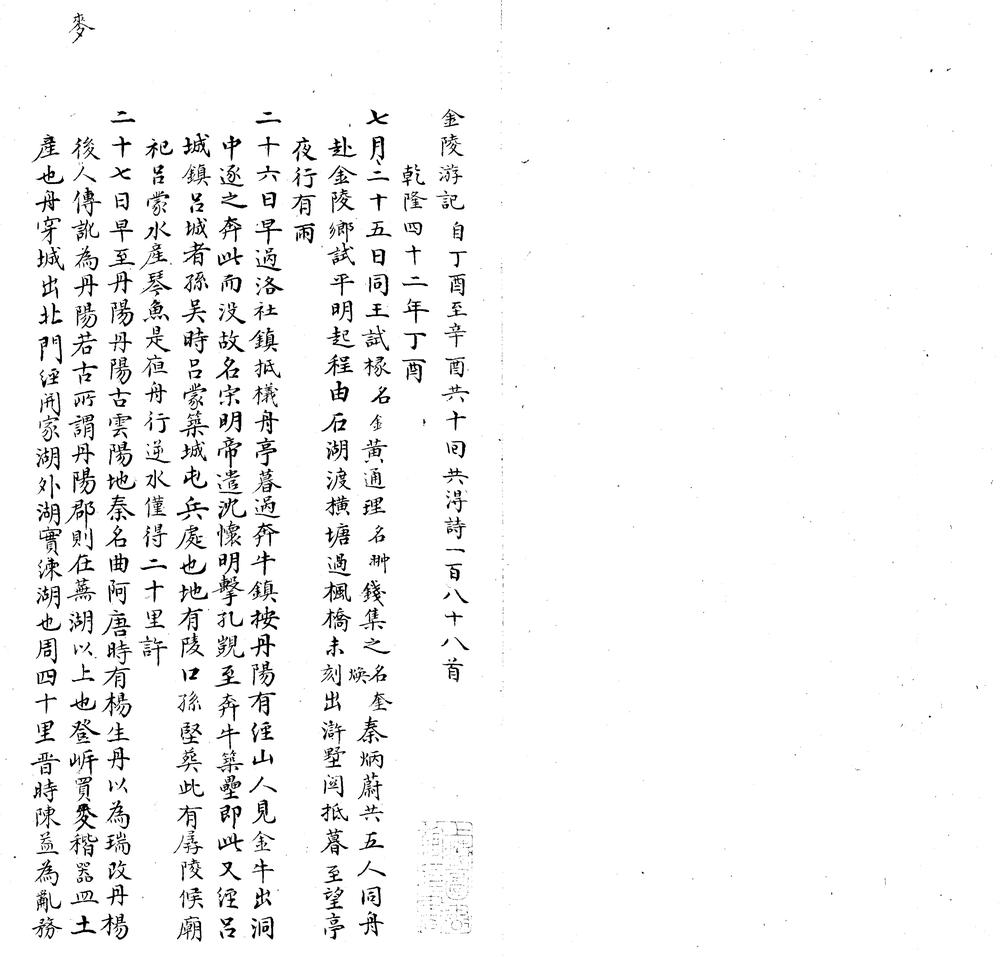 金陵游記 自丁酉至辛酉共十回共得詩一百八十八首
乾隆四十二年丁酉
七月二十五日同王試椽名金黃通理名翀錢集之名奎煥秦炳蔚共五人同舟
赴金陵鄉試平明起程由石湖渡橫塘過楓橋未刻出滸墅関抵暮至望亭
夜行有雨
二十六日早過洛社鎮抵檥舟亭暮過奔牛鎮按丹陽有經山人見金牛出洞
中逐之奔此而没故名宋明帝遣沈懷明擊孔覬至奔牛築壘即此又經呂
城鎮呂城者孫吴時呂蒙築城屯兵處也地有陵口孫堅葬此有孱陵候廟
祀呂蒙水產琴魚是夜舟行逆水僅得二十里許
二十七日早至丹陽丹陽古雲陽地秦名曲阿唐時有楊生丹以為瑞改丹楊
後人傳訛為丹陽若古所謂丹陽郡則在蕪湖以上也登岸買麥稭器皿土
產也舟穿城出北門經開家湖外湖實練湖也周四十里晋時陳益為亂務
麥